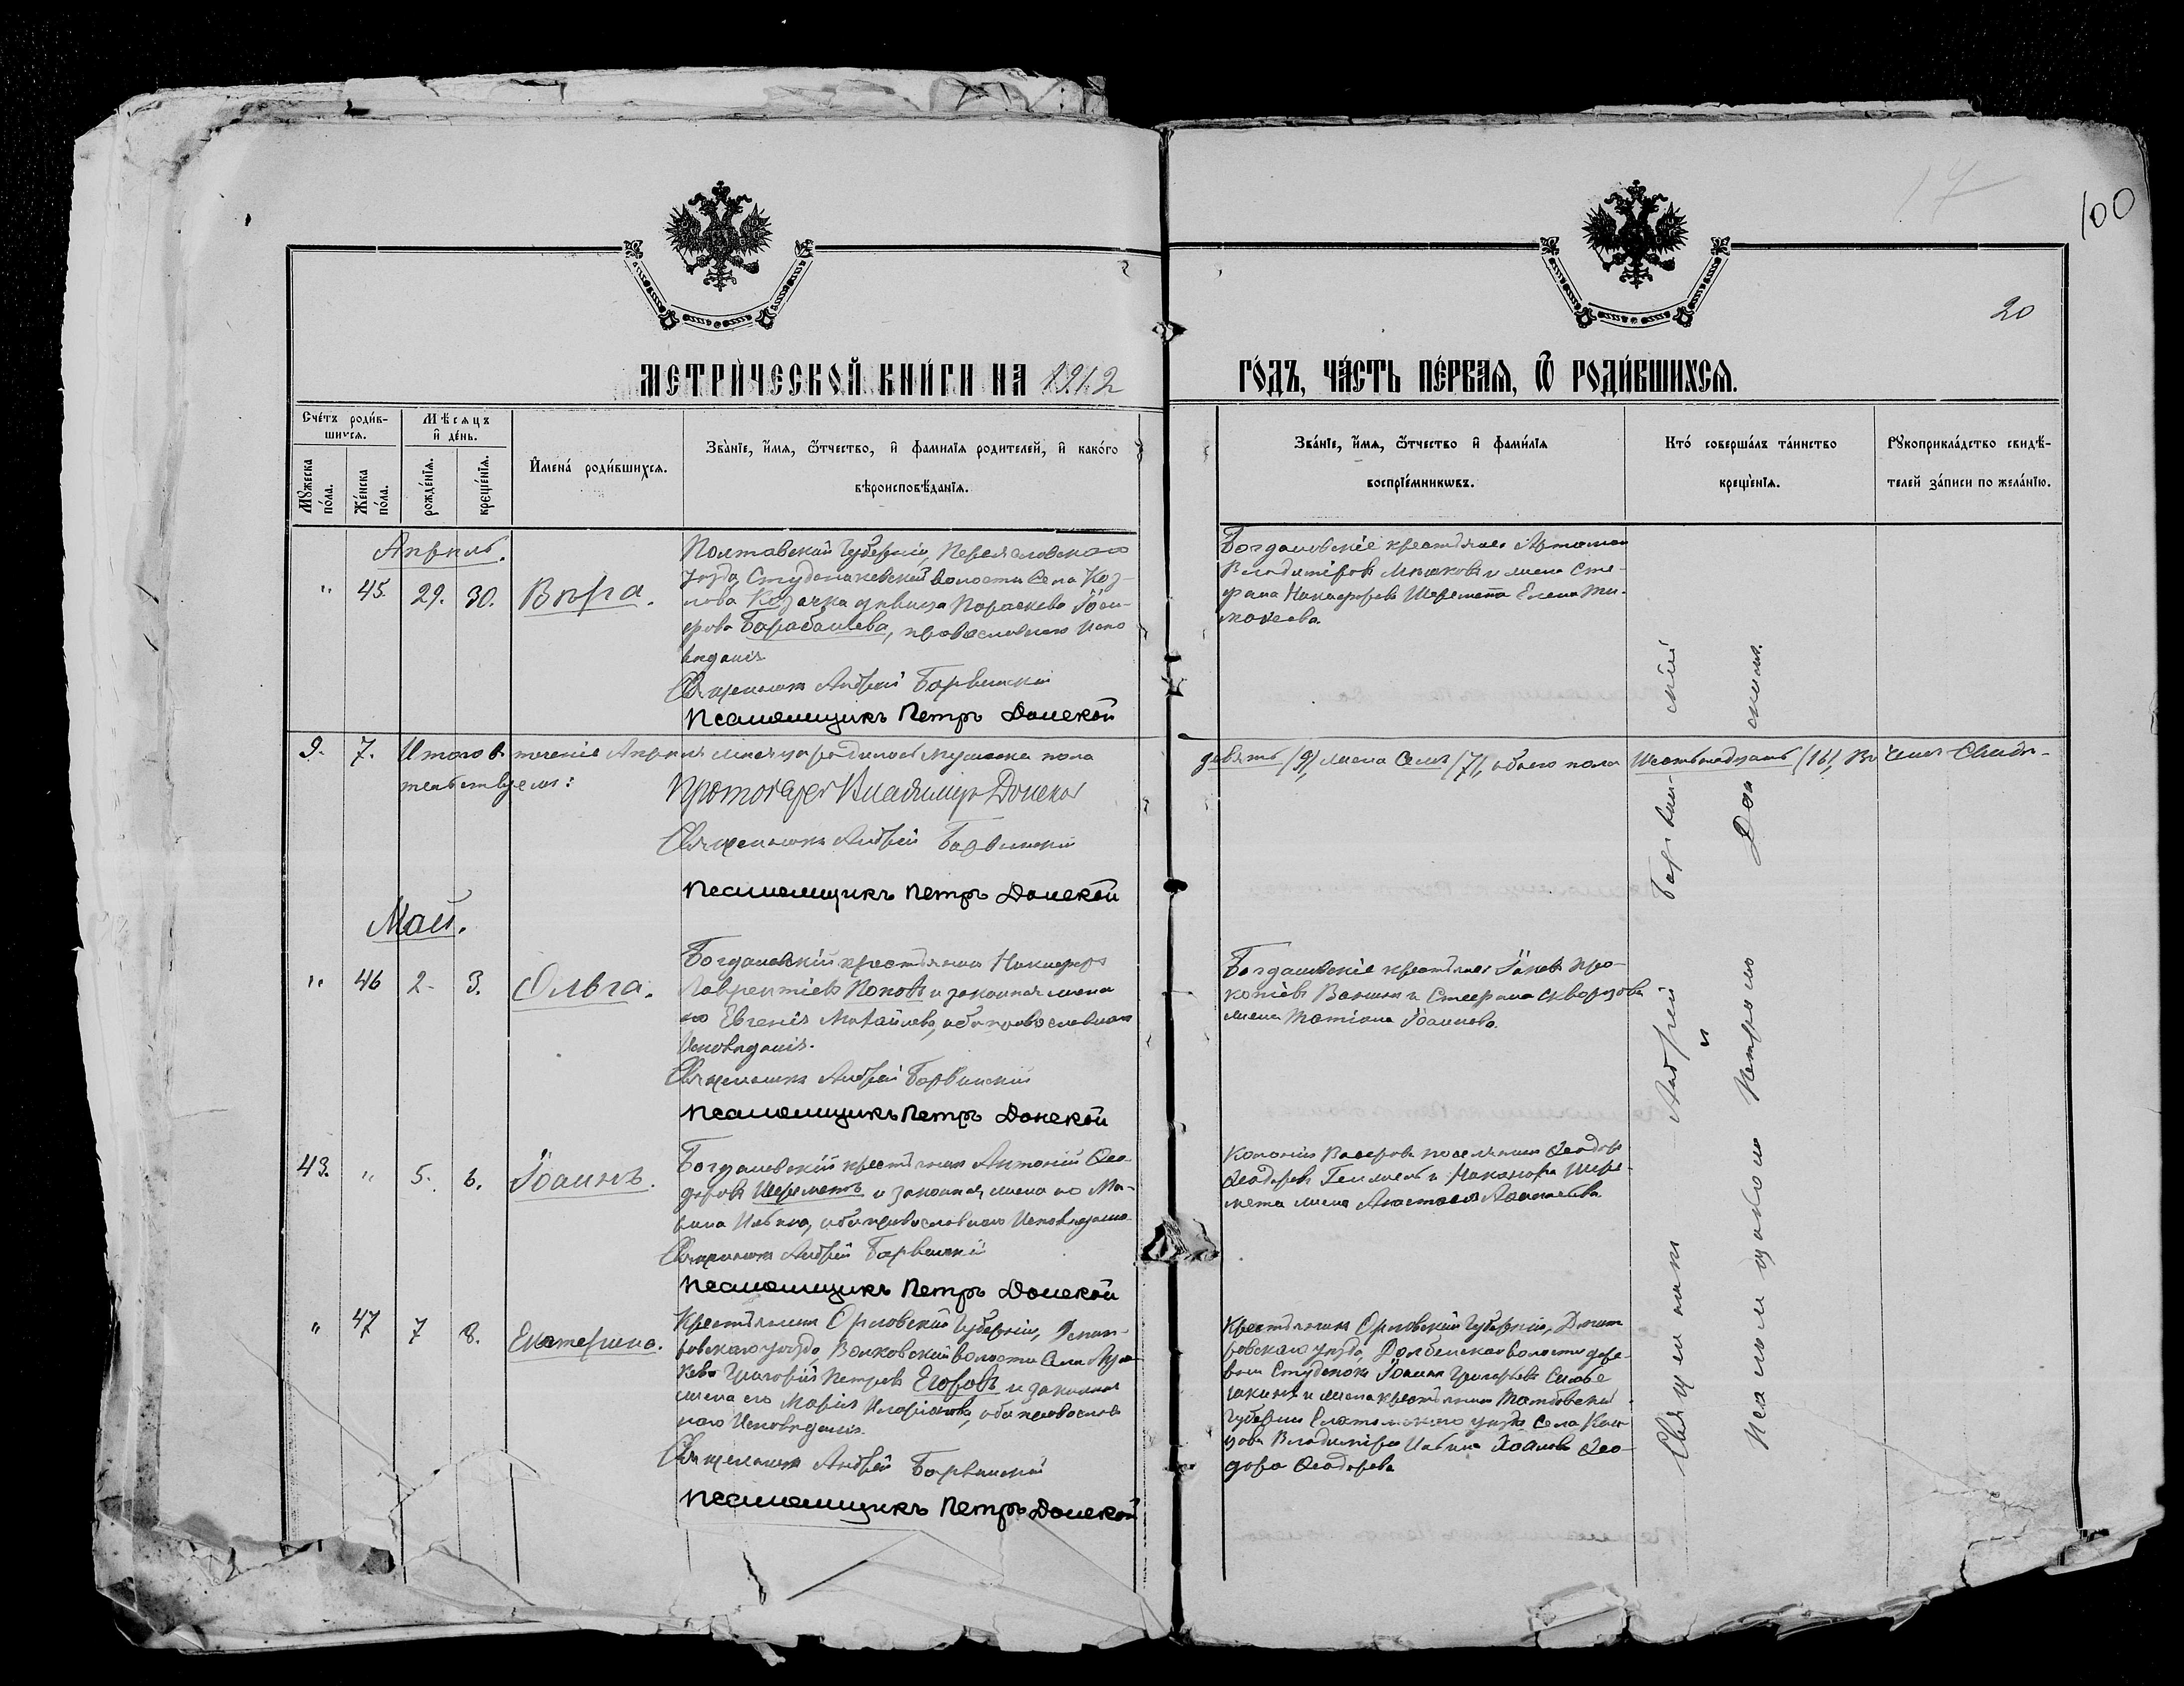 100
20
МЕТРИ́ЧЕСКОЙ КНИ́ГИ НА 1912
ГО́ДЪ, ЧА́СТЬ ПЕ́РВАЯ, Ѿ РОДИ́ВШИХСЯ.
Сче́тъ роди́в-
шихся.
Мѣсяцъ
и де́нь.
Мꙋжеска
по́ла.
Же́нска
по́ла.
рожде́нїя.
креще́нїя.
Имена́ роди́вшихся.
Зва́нїе, и́мя, ѻтчество, и фамилїя родителей, и како́го
вѣроисповѣ́данїя.
Зва́нїе, и́мя, ѻтчество и фами́лїя
воспрїе́мниковъ.
Кто́ соверша́лъ та́инство
креще́нїя.
Рꙋкоприкла́дство свидѣ́-
телей за́писи по жела́нїю.
Апрѣль.
" 45. 29. 30. Вѣра.
Полтавской Губернiи, Переяславскаго
уѣзда, Студениковской волости Села Коз-
лова Козачка дѣвица Параскева Iоси-
фова Барабашева, православнаго испо
вѣданiя
Священникъ Андрей Барвинскiй
Псаломщикъ Петръ Донской
Богдановскiе крестьяне Артамон
Владимiровъ и жена Сте-
фана Никифорова Шеремета Елена Ти-
моѳеева.
9. 7. Итого въ теченiе Апрѣля мѣсяца родилось мужеска пола
девять /9/, женска семь /7/, обоего пола шестьнадцать /16/, Въ чемъ Свидѣ-
тельствуемъ:
Протоiерей Владимiръ Донской
Священникъ Андрей Барвинскiй
Псаломщикъ Петръ Донской
Май.
" 46 2. 3. Ольга.
Богдановскiй крестьянинъ Никифоръ
Лаврентiевъ Поповъ и законная жена
его Евгенiя Михайлова, оба православнаго
исповѣданiя.
Священникъ Андрей Барвинскiй
Псаломщикъ Петръ Донской
Богдановскiе крестьяне Iаковъ Про-
копiевъ и Стефана Скворцова
жена Татiана Iоаннова.
43. " 5. 6. Iоаннъ.
Богдановскiй крестьянинъ Антонiй Ѳео-
доровъ Шереметъ и законная жена его Ма-
рина Ильина, оба православнаго Исповѣданiя
Священникъ Андрей Барвинскiй
Псаломщикъ Петръ Донской
Колонiи поселянинъ Ѳеодоръ
Ѳеодоровъ и Никанора Шере-
мета жена Анастасiя
" 47 7 8. Екатерина.
Крестьянинъ Орловской Губернiи, Дмит-
ровскаго уѣзда, Волковской волости Села
Григорiй Петровъ Егоровъ и законная
жена его Марiя оба православ
наго Исповѣданiя.
Священникъ Андрей Барвинскiй
Псаломщикъ Петръ Донской
Крестьянинъ Орловской Губернiи, Дмит
ровскаго уѣзда, волости дере-
вни Студенокъ Iоаннъ Григорьевъ
и жена крестьянина Тамбовской
Губернiи Елатомскаго уѣзда Села
Владимiра Ильина Ѳео-
дора Ѳеодорова
Священникъ Андрей Барвинскiй
и
Псаломщикомъ Петромъ Донскимъ.